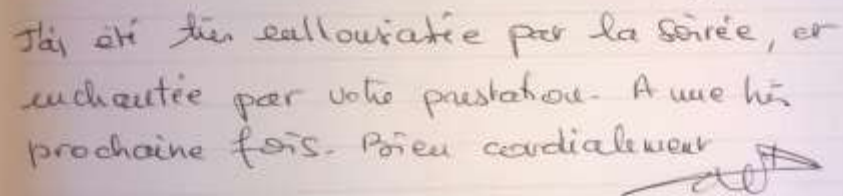 J'ai été très enthousiasmée par la soirée, et
enchantée par votre prestation. A une très
prochaine fois. Bien cordialement